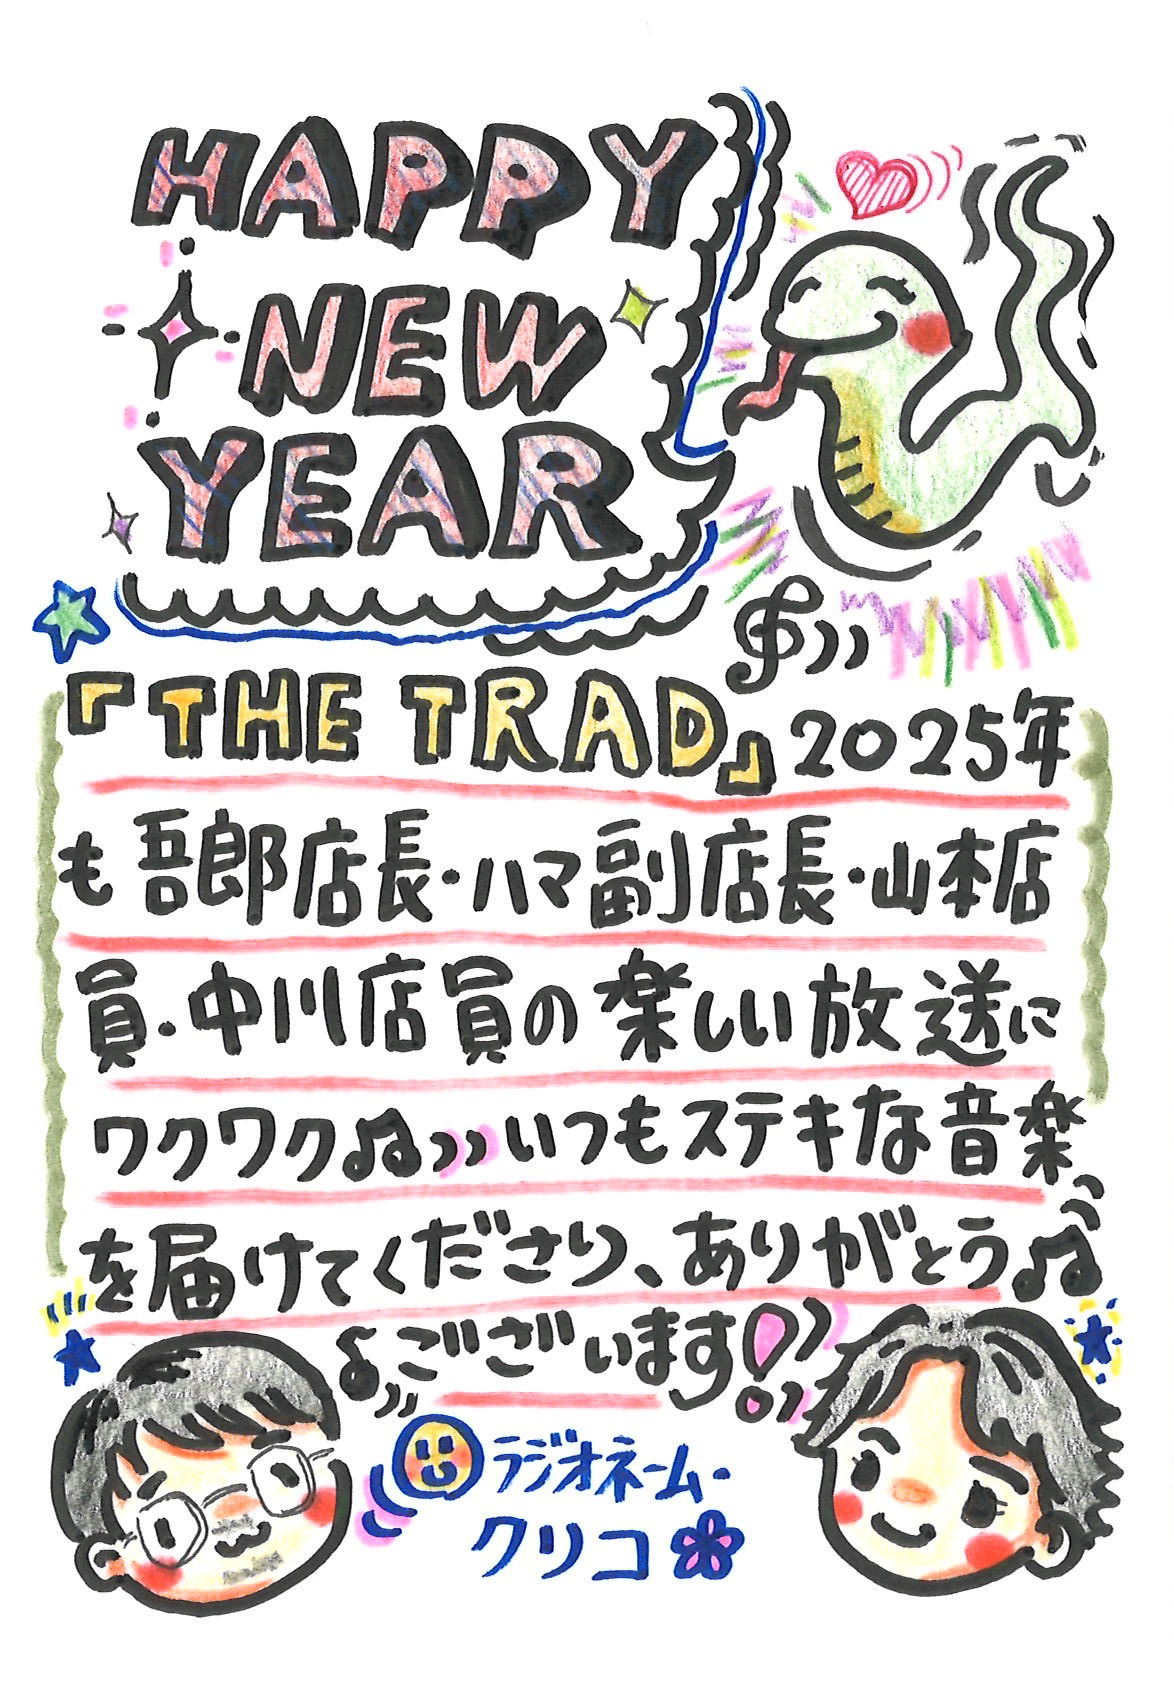 HAPPY
NEW
YEAR
『THE TRAD』2025年
も吾郎店長・ハマ副店長・山本店
員・中川店員の楽しい放送に
ワクワク♫いつもステキな音楽
を届けてくださり、ありがとう♫
♪ございます!
ラジオネーム・
クリコ